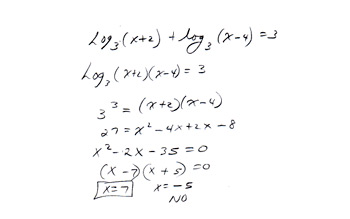 Log₃(x+2) + log₃(x-4) = 3
Log₃(x+2)(x-4) = 3
3³ = (x+2)(x-4)
27 = x² - 4x + 2x - 8
x² - 2x - 35 = 0
(x-7)(x+5) = 0
x = 7 x = -5
NO